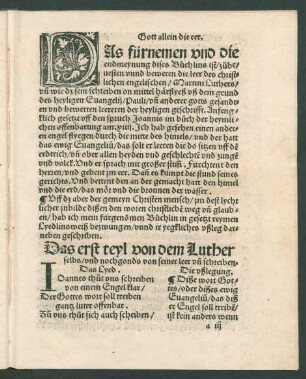 Gott allein die eer.
DAs fürnemen vnd die
endmeynung dises Büchlins ist/zübe/
uesten vnnd beweren die leer des christ/
lichen engelischen/Martini Luthers/
vñ wie dz sein schreiben on mittel härfließ vß dem grund
des heyligen Euangelij/Pauli/vñ anderer gotts gesand
ten vnd bewerten lereren der heyligen geschrifft. Anfeng/
klich gesetzt vff den spruch Joannis im büch der heymli/
chen offenbarung am.xiiij. Ich hab gesehen einen andes
en engel fliegen durch die mitte des himels/vnd der hatt
das ewig Euangeliũ/das solt er leeren die do sitzen vff dẽ
erdrich/vñ über allen heyden vnd geschlecht vnd zungẽ
vnd volck. Vnd er sprach mit grosser stim̃. Fürchtent den
herren/vnd gebent jm eer. Dañ es kumpt die stund seines
gerichts. Vnd bettent den an der gemacht hatt den himel
vnd die erd/das mör vnd die brunnen der wasser.
¶ Vff dz aber der gemeyn Christen mensch/jm dest lycht
licher ynbilde dißen den woren christlichẽ weg vñ glaub/
en/hab ich mein fürgenomen Büchlin in gesetzt reymen
Lyedlins weiß bezwungen/vnnd yr yegkliches vßleg dar
neben geschriben.
Das erst teyl von dem Luther
selbs/vnd nochgonds von seiner leer vñ schreiben.
Das Lyed.
IOannes thüt vns schreiben
von einem Engel klar/
Der Gottes wort soll treiben
gantz luter offenbar.
Zü vns thüt sich auch schreiben/
Die vßlegung.
¶ Diße wort Got/
tes/oder dißes ewig
Euangeliũ/das diß
er Engel soll treibẽ/
ist kein anders wenn
a iij